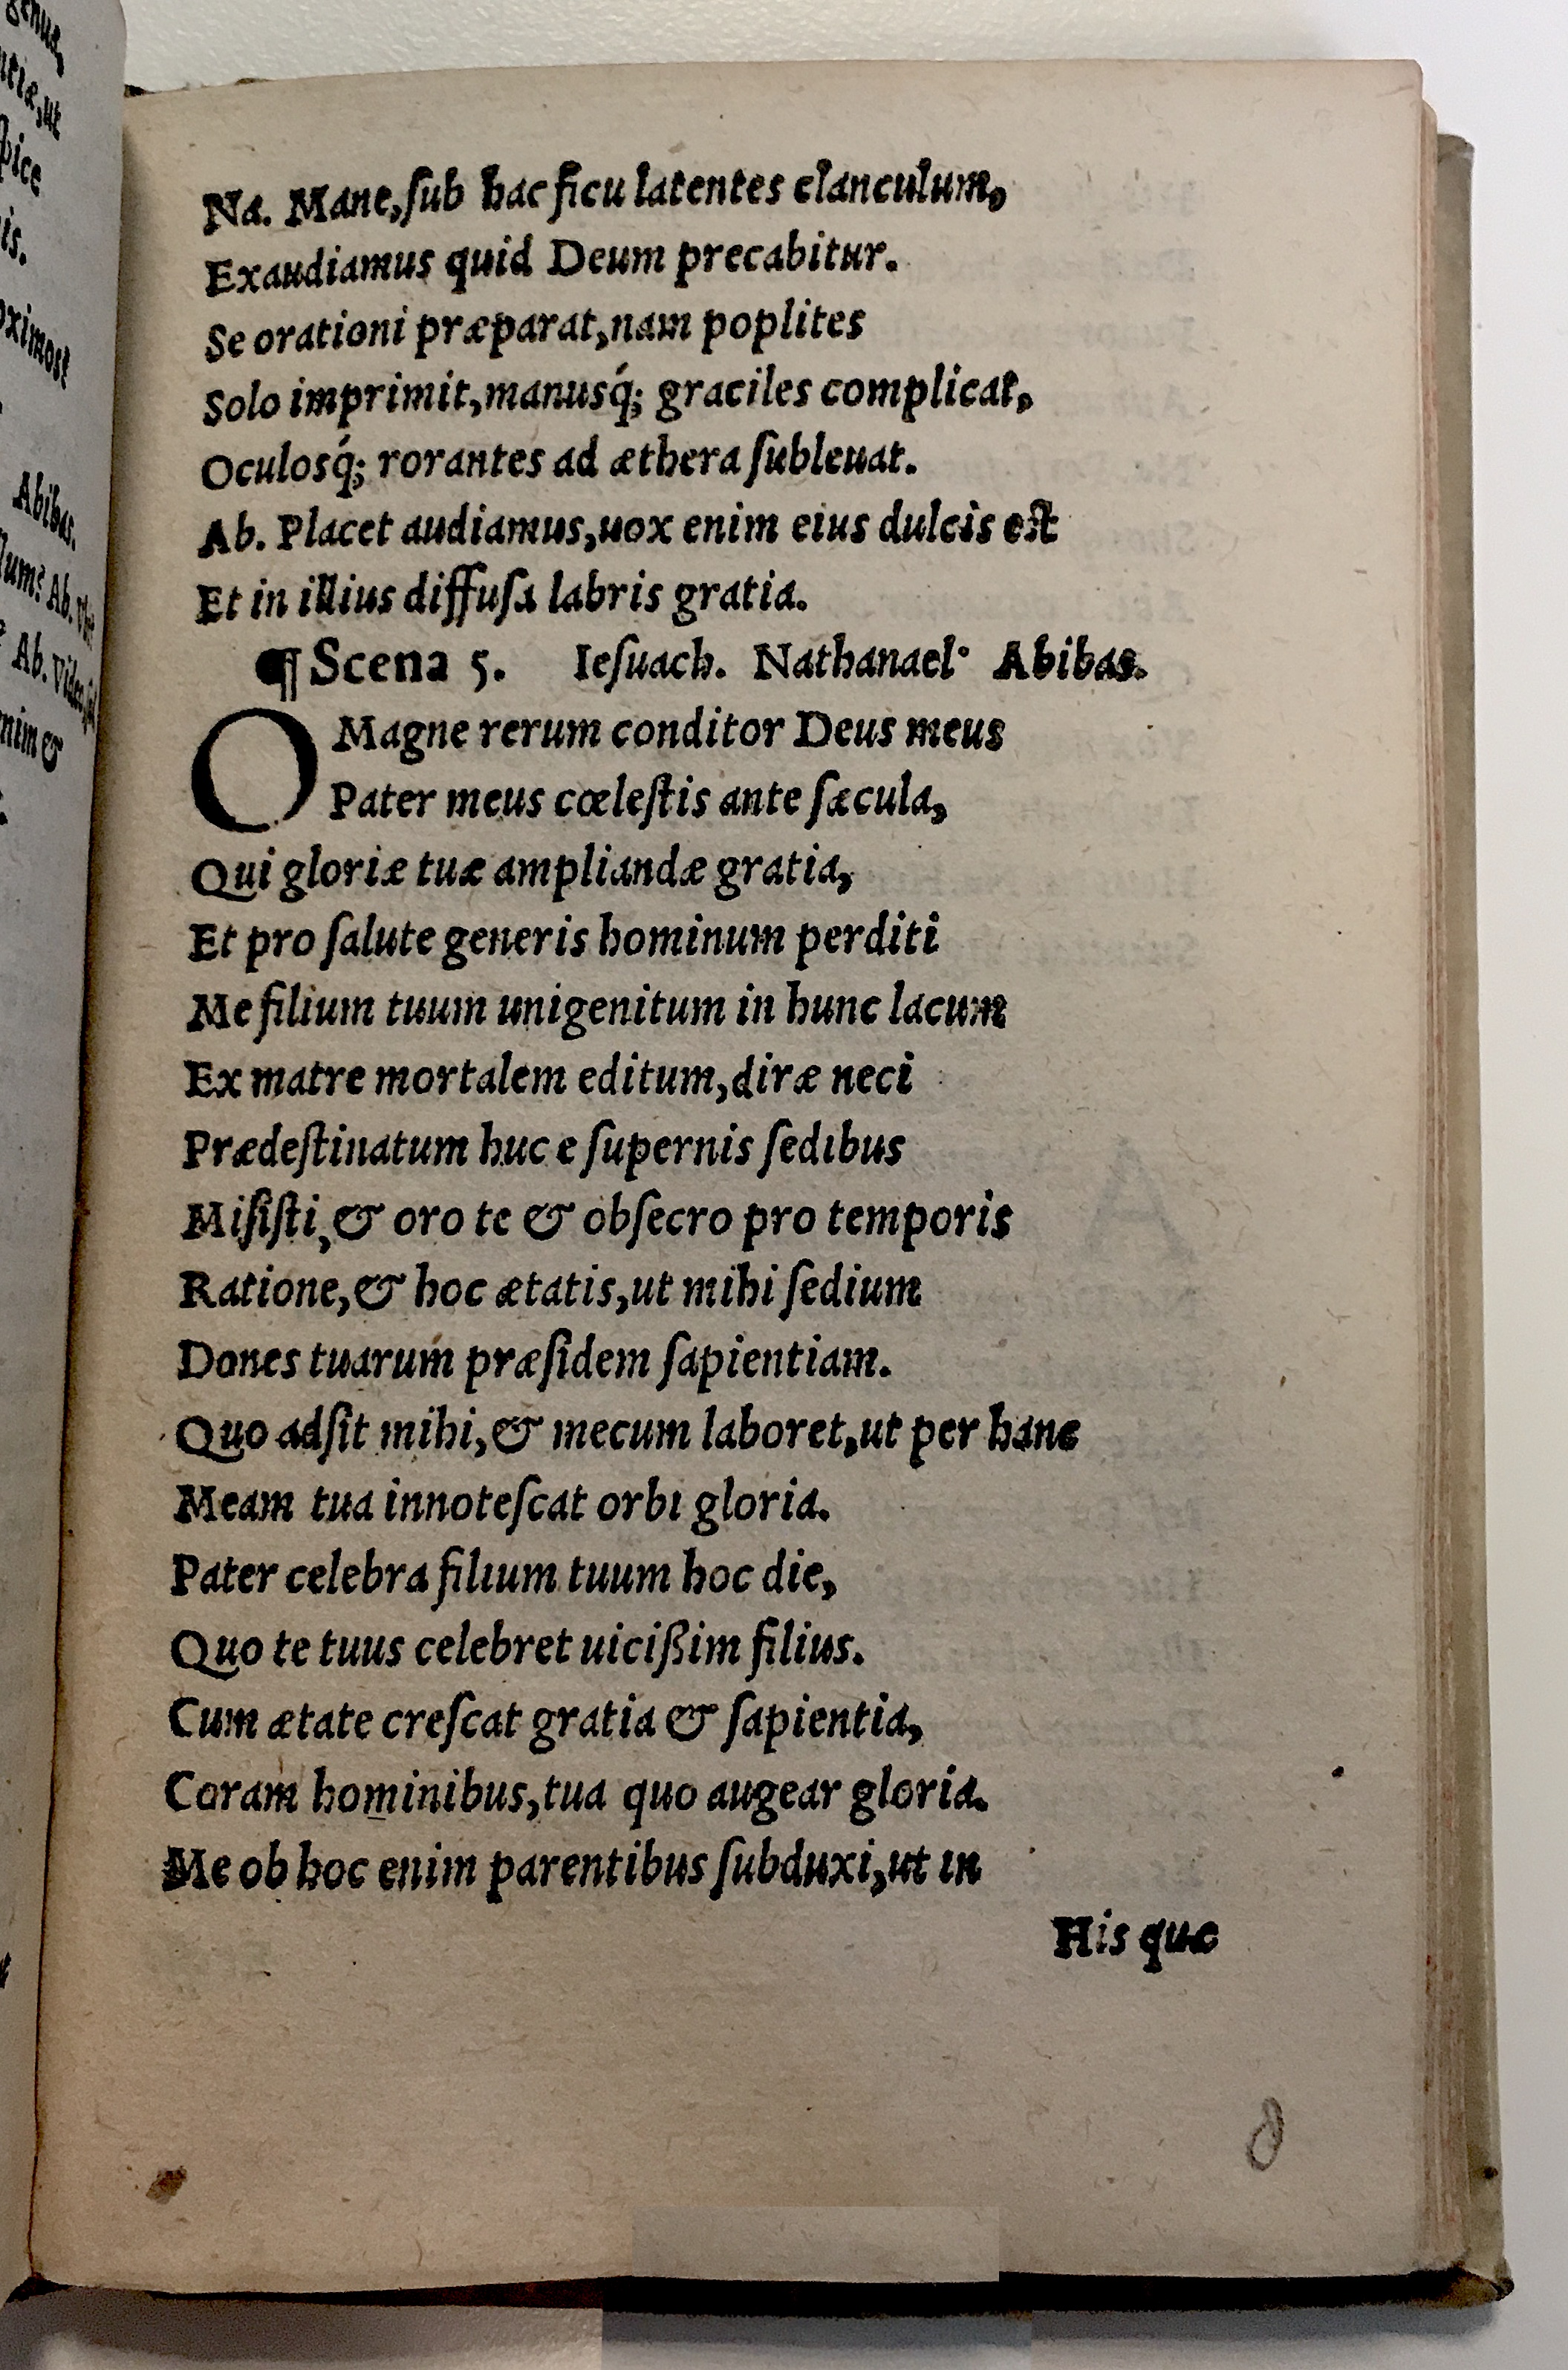 Na. Mane,ſub hac ficu latentes clanculum,
Exaudiamus quid Deum precabitur.
Se orationi præparat,nam poplites
Solo imprimit,manusq́; graciles complicat,
Oculosq́; rorantes ad æthera ſubleuat.
Ab. Placet audiamus,uox enim eius dulcis est
Et in illius diffuſa labris gratia.
¶ Scena 5. Ieſuach. Nathanael· Abibas.
O Magne rerum conditor Deus meus
Pater meus cœleſtis ante ſæcula,
Qui gloriæ tuæ ampliandæ gratia,
Et pro ſalute generis hominum perditi
Me filium tuum unigenitum in hunc lacum
Ex matre mortalem editum,diræ neci
Prædeſtinatum huc e ſupernis ſedibus
Miſiſti,& oro te & obſecro pro temporis
Ratione,& hoc ætatis,ut mihi ſedium
Dones tuarum præſidem ſapientiam.
Quo adſit mihi,& mecum laboret,ut per hanc
Meam tua innoteſcat orbi gloria.
Pater celebra filium tuum hoc die,
Quo te tuus celebret uicißim filius.
Cum ætate creſcat gratia & ſapientia,
Coram hominibus,tua quo augear gloria.
Me ob hoc enim parentibus ſubduxi,ut in
His quæ
genus,
utiæ,ut
pice
is.
oximost
Abibas.
Ab.
Ab.
enim &